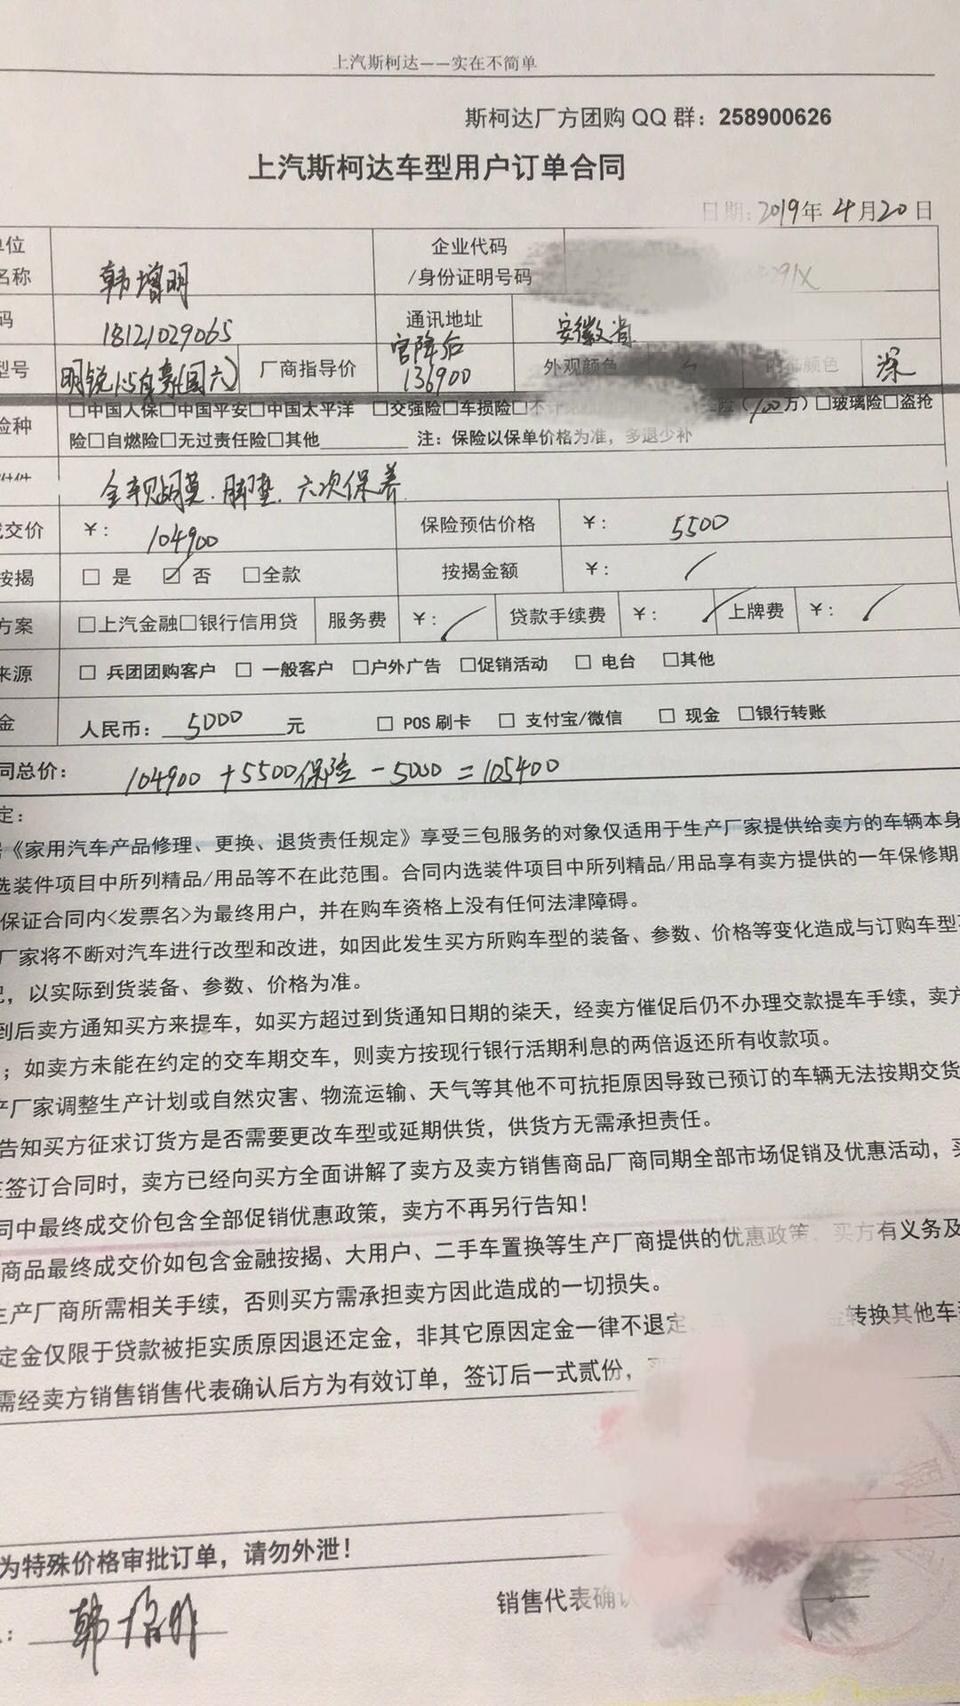 上汽斯柯达——实在不简单
斯柯达厂方团购 QQ 群：258900626
上汽斯柯达车型用户订单合同
日期: 2019年 4月20日
单位 企业代码
名称 韩增明 /身份证明号码 091X
码 18121029065 通讯地址 安徽省
型号 明锐1.5自 (国六) 厂商指导价 官降后 136900 外观颜色 内饰颜色 深
□中国人保□中国平安□中国太平洋 □交强险□车损险□不计 险（100万）□玻璃险□盗抢
险种 险□自燃险□无过责任险□其他 注：保险以保单价格为准，多退少补
全车贴膜.脚垫.六次保养
成交价 ￥: 104900 保险预估价格 ￥: 5500
按揭 □ 是 ☑ 否 □全款 按揭金额 ￥: /
方案 □上汽金融□银行信用贷 服务费 ￥: / 贷款手续费 ￥: / 上牌费 ￥: /
来源 □ 兵团团购客户 □ 一般客户 □户外广告 □促销活动 □ 电台 □其他
金 人民币: 5000 元 □ POS 刷卡 □ 支付宝/微信 □ 现金 □银行转账
同总价: 104900 +5500保险 -5000 =105400
定：
《家用汽车产品修理、更换、退货责任规定》享受三包服务的对象仅适用于生产厂家提供给卖方的车辆本身
选装件项目中所列精品/用品等不在此范围。合同内选装件项目中所列精品/用品享有卖方提供的一年保修期
保证合同内<发票名>为最终用户，并在购车资格上没有任何法津障碍。
厂家将不断对汽车进行改型和改进，如因此发生买方所购车型的装备、参数、价格等变化造成与订购车型
，以实际到货装备、参数、价格为准。
到后卖方通知买方来提车，如买方超过到货通知日期的柒天，经卖方催促后仍不办理交款提车手续，卖方
；如卖方未能在约定的交车期交车，则卖方按现行银行活期利息的两倍返还所有收款项。
产厂家调整生产计划或自然灾害、物流运输、天气等其他不可抗拒原因导致已预订的车辆无法按期交货
告知买方征求订货方是否需要更改车型或延期供货，供货方无需承担责任。
签订合同时，卖方已经向买方全面讲解了卖方及卖方销售商品厂商同期全部市场促销及优惠活动，买
同中最终成交价包含全部促销优惠政策，卖方不再另行告知！
商品最终成交价如包含金融按揭、大用户、二手车置换等生产厂商提供的优惠政策、买方有义务及
生产厂商所需相关手续，否则买方需承担卖方因此造成的一切损失。
定金仅限于贷款被拒实质原因退还定金，非其它原因定金一律不退定 转换其他车
需经卖方销售销售代表确认后方为有效订单，签订后一式贰份，
为特殊价格审批订单，请勿外泄！
销售代表确认